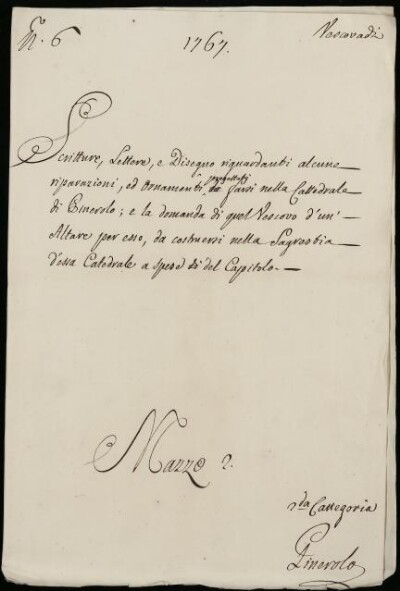 N. 6 1767. Vescovadi
Scritture, Lettere, e Disegno riguardanti alcune
riparazioni, ed ornamenti progettati da farsi nella Cattedrale
di Pinerolo; e la domanda di quel Vescovo d'un'
Altare per esso, da costruersi nella Sagrestia
d'essa Catedrale a spese di del Capitolo.
Mazzo 2.
2da Cattegoria
Pinerolo